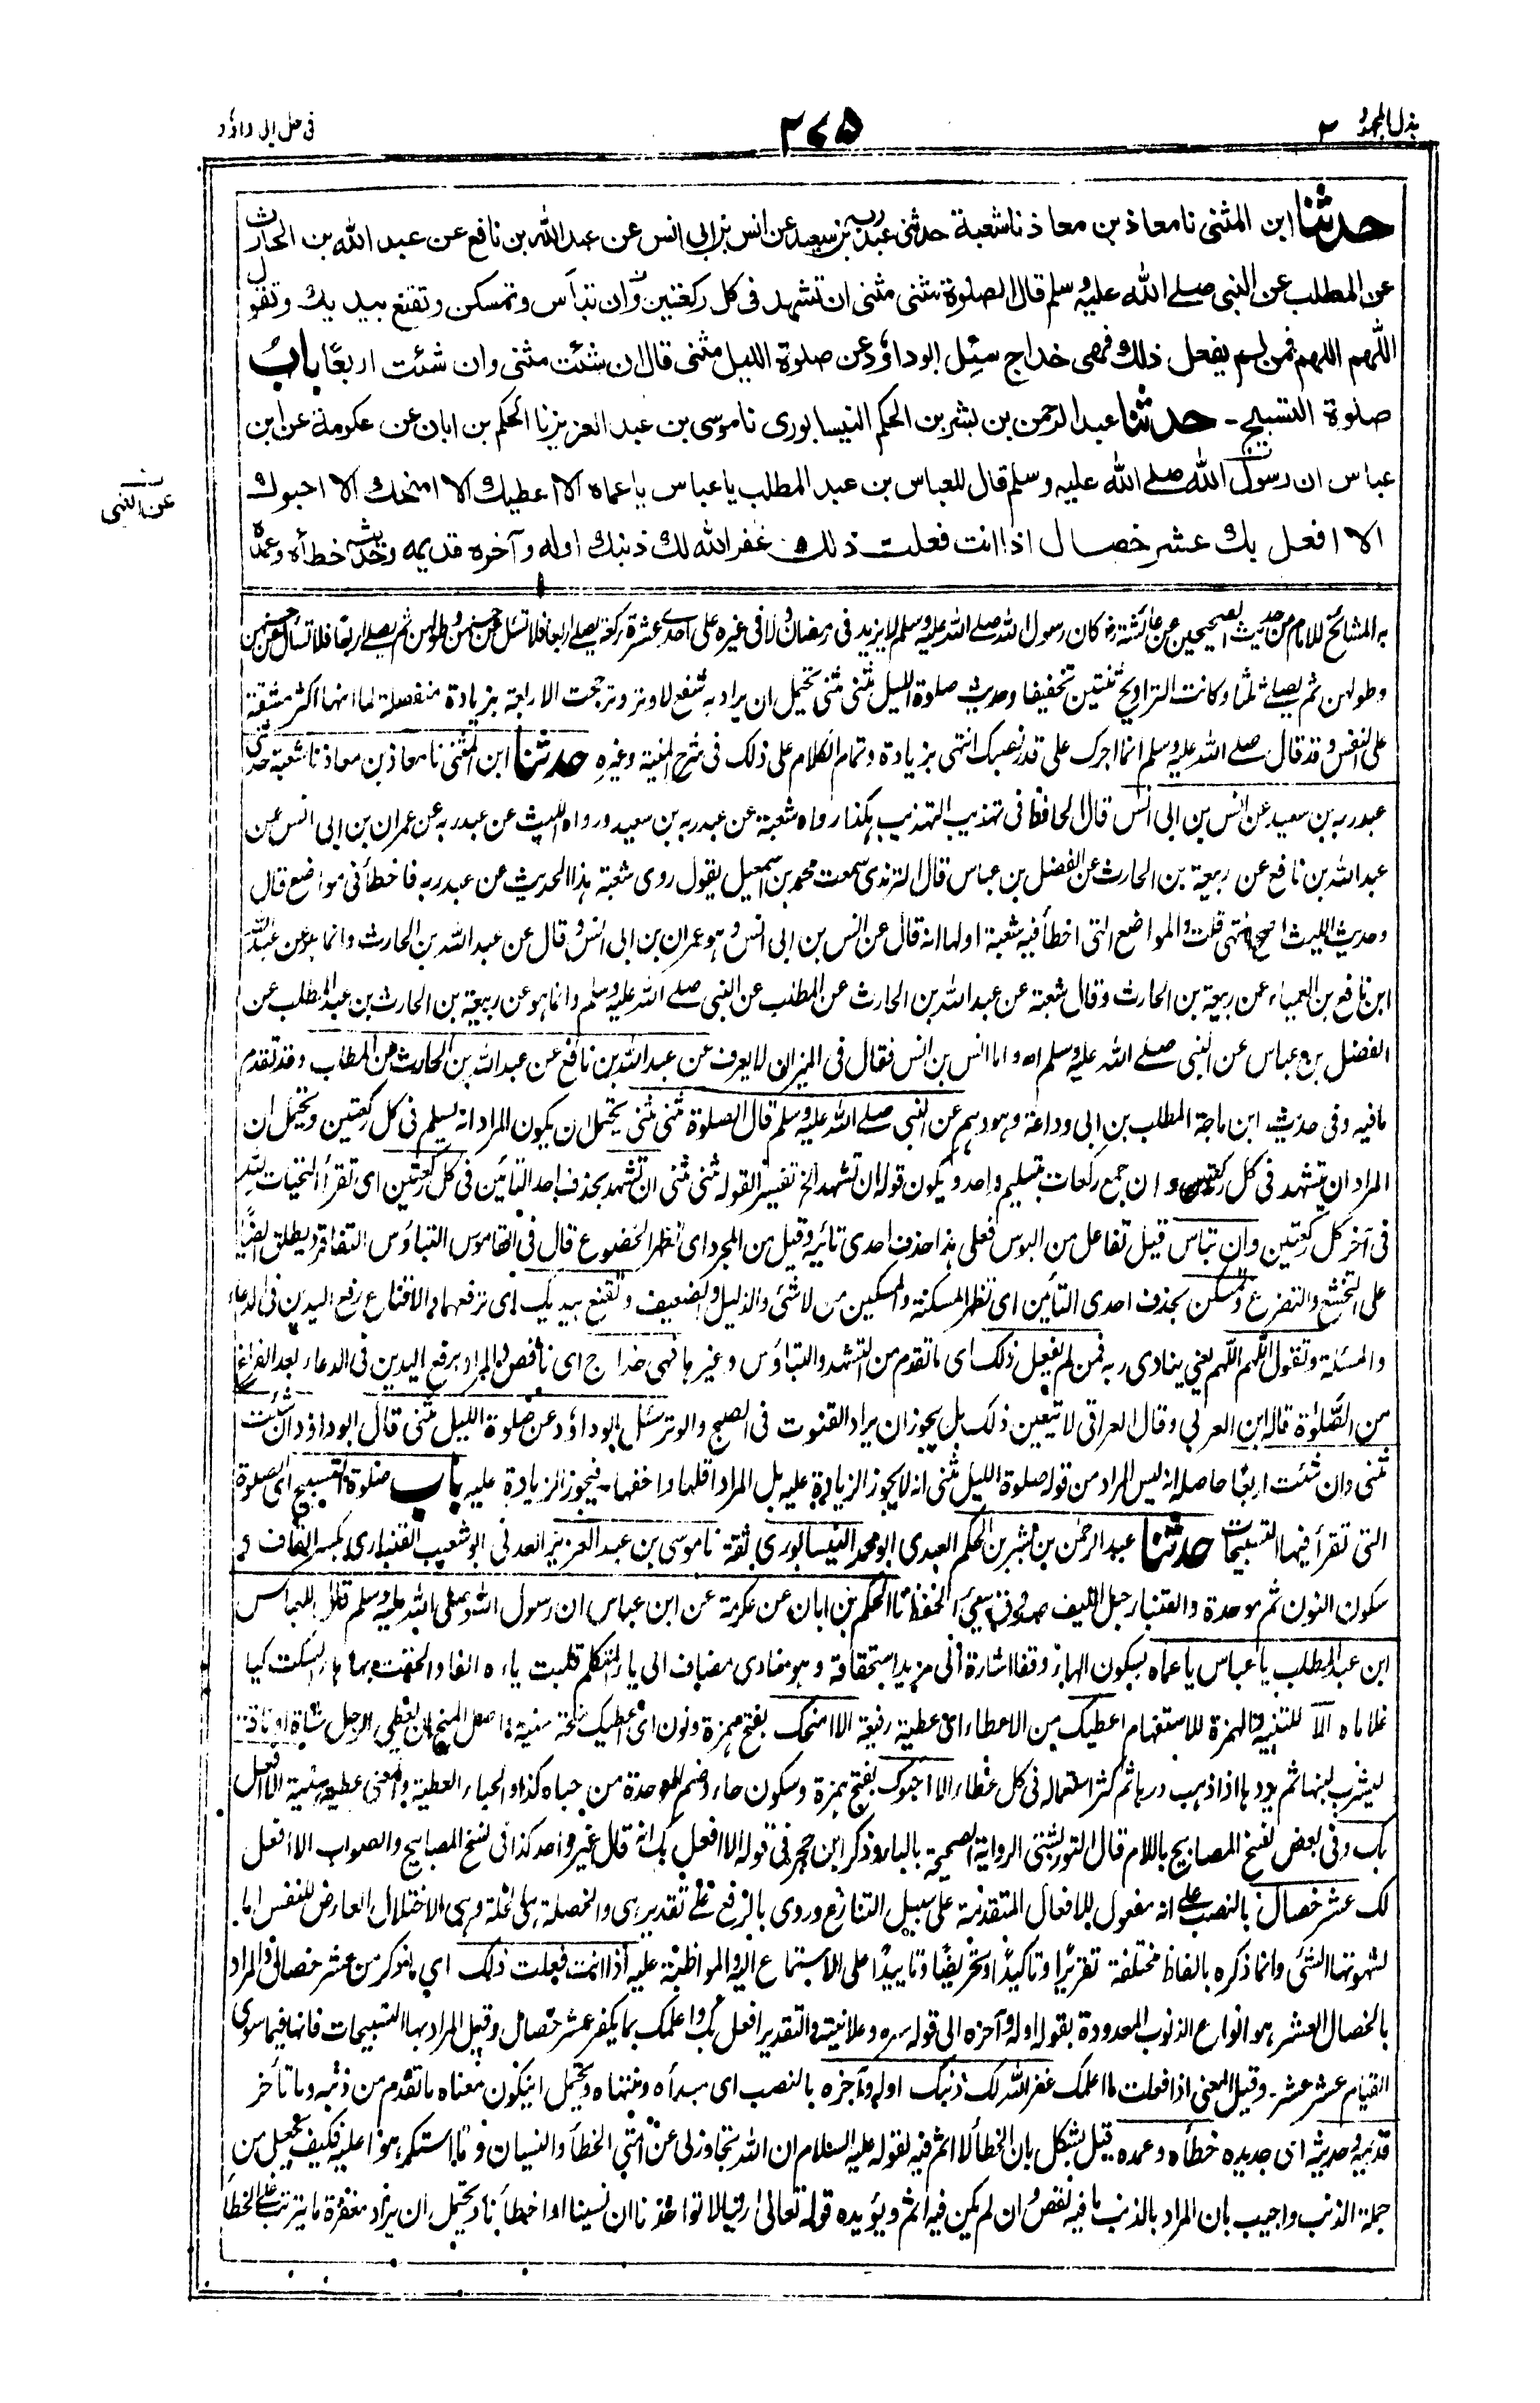 بذل المجهود ٢
٢٧٥
في حل ابي داؤد
حدثنا ابن المثنى نا معاذ بن معاذ نا شعبة حدثني عبد ربه بن سعيد عن انس بن ابي انس عن عبد الله بن نافع عن عبد الله بن الحارث
عن المطلب عن النبي صلى الله عليه وسلم قال الصلوة مثنى مثنى ان تشهد في كل ركعتين وان تبأس وتمسكن وتقنع بيديك وتقول
اللهم اللهم فمن لم يفعل ذلك فهي خداج سئل ابو داؤد عن صلوة الليل مثنى قال ان شئت مثنى وان شئت اربعا باب
صلوة التسبيح - حدثنا عبد الرحمن بن بشر بن الحكم النيسابوري نا موسى بن عبد العزيز نا الحكم بن ابان عن عكرمة عن ابن
عباس ان رسول الله صلى الله عليه وسلم قال للعباس بن عبد المطلب يا عباس يا عماه الا اعطيك الا امنحك الا احبوك
عن النبي
الا افعل بك عشر خصال اذا انت فعلت ذلك غفر الله لك ذنبك اوله وآخره قديمه وحديثه خطأه وعمده
به المشائخ للامام من حديث الصحيحين عن عائشة رض كان رسول الله صلى الله عليه وسلم لا يزيد في رمضان ولا في غيره على احدى عشرة ركعة يصلي اربعا فلا تسئل عن حسنهن وطولهن ثم يصلي اربعا فلا تسأل عن حسنهن
وطولهن ثم يصلي ثلثا وكانت التراويح ثنتين تخفيفا وحديث صلوة الليل مثنى مثنى يحتمل ان يراد به شفع لا وتر وترجحت الاربعة بزيادة منفصلة لما انها اكثر مشقة
على النفس وقد قال صلى الله عليه وسلم انما اجرك على قدر نصبك انتهى بزيادة وتمام الكلام على ذلك في شرح المنية وغيره حدثنا ابن المثنى نا معاذ بن معاذ نا شعبة حدثني
عبد ربه بن سعيد عن انس بن ابي انس قال الحافظ في تهذيب التهذيب هكذا رواه شعبة عن عبد ربه بن سعيد ورواه الليث عن عبد ربه عن عمران بن ابي انس عن
عبد الله بن نافع عن ربيعة بن الحارث عن الفضل بن عباس قال الترمذي سمعت محمد بن اسمعيل يقول روى شعبة هذا الحديث عن عبد ربه فاخطأ في مواضع قال
وحديث الليث اصح انتهى قلت والمواضع التي اخطأ فيه شعبة اولها انه قال عن انس بن ابي انس وهو عمران بن ابي انس وقال عن عبد الله بن الحارث وانما هو عن عبد الله
ابن نافع بن العمياء عن ربيعة بن الحارث وقال شعبة عن عبد الله بن الحارث عن المطلب عن النبي صلى الله عليه وسلم وانما هو عن ربيعة بن الحارث بن عبد المطلب عن
الفضل بن عباس عن النبي صلى الله عليه وسلم اه واما انس بن انس فقال في الميزان لا يعرف عن عبد الله بن نافع عن عبد الله بن الحارث عن المطلب وقد تقدم
ما فيه وفي حديث ابن ماجة المطلب بن ابي وداعة وهو وهم عن النبي صلى الله عليه وسلم قال الصلوة مثنى مثنى يحتمل ان يكون المراد انه يسلم في كل ركعتين ويحتمل ان
المراد ان يتشهد في كل ركعتين وان جمع ركعات بتسليم واحد ويكون قوله ان تشهد الخ تفسيرا لقوله مثنى مثنى ان تشهد بحذف احد التائين في كل ركعتين اى تقرأ التحيات لله
في آخر كل ركعتين وان تباس قيل تفاعل من البوس فعلى هذا حذف احدى تائيه وقيل من المجرد اى تظهر الخضوع قال في القاموس التباؤس التفاقر ويطلق ايضا
على التخشع والتضرع وتمسكن بحذف احدى التأين اى تظهر المسكنة والمسكين من لا شئ والذليل والضعيف وتقنع بيديك اى ترفعهما والاقناع رفع اليدين في الدعاء
والمسئلة وتقول اللهم اللهم يعني ينادي ربه فمن لم يفعل ذلك اى ما تقدم من التشهد والتباؤس وغيرها فهي خداج اى ناقص والمراد برفع اليدين في الدعاء بعد الفراغ
من الصلوة قاله ابن العربي وقال العراقي لا يتعين ذلك بل يجوز ان يراد القنوت في الصبح والوتر سئل ابو داؤد عن صلوة الليل مثنى قال ابو داؤد ان شئت
مثنى وان شئت اربعا حاصله انه ليس المراد من قوله صلوة الليل مثنى انه لا يجوز الزيادة عليه بل المراد اقلها واخفها - فيجوز الزيادة عليه باب صلوة التسبيح اى الصلوة
التي تقرأ فيها التسبيحات حدثنا عبد الرحمن بن بشر بن الحكم العبدي ابو محمد النيسابوري ثقة نا موسى بن عبد العزيز العدني ابو شعيب القنباري بكسر القاف و
سكون النون ثم موحدة والقنبار حبل الليف صدوق سيئ الحفظ نا الحكم بن ابان عن عكرمة عن ابن عباس ان رسول الله صلى الله عليه وسلم قال للعباس
ابن عبد المطلب يا عباس يا عماه بسكون الهاء وقفا اشارة الى مزيد استحقاقه وهو منادى مضاف الى ياء المتكلم قلبت ياءه الفا والحقت بها هاء السكت كيا
غلاماه الا للتنبيه والهمزة للاستفهام اعطيك من الاعطاء اى عطية رفيعة الا امنحك بفتح همزة ونون اى اعطيك منحة سنية واصل المنح ان يعطي الرجل شاة او ناقة
ليشرب لبنها ثم يردها اذا ذهب درها ثم كثر استعماله في كل عطاء الا احبوك بفتح همزة وسكون حاء وضم للموحدة من حباه كذا والحباء العطية والمعنى عطية سنية الا افعل
بك وفي بعض نسخ المصابيح باللام قال التوربشتي الرواية الصحيحة بالباء وذكر ابن حجر في قوله الا افعل بك انه قال غير واحد كذا في نسخ المصابيح والصواب الا افعل
لك عشر خصال بالنصب على انه مفعول للافعال المتقدمة على سبيل التنازع وروي بالرفع على تقدير هي والخصلة هي الخلة وهي الاختلال العارض للنفس اما
لشهوتها الشئ وانما ذكره بالفاظ مختلفة تقريرا وتاكيدا وتحريضا وتاييدا على الاستماع اليه والمواظبة عليه اذا انت فعلت ذلك اي ما ذكر من عشر خصال والمراد
بالخصال العشر هو انواع الذنوب المعدودة بقوله اوله وآخره الى قوله سره وعلانيته والتقدير افعل بك واعلمك بما يكفر عشر خصال وقيل المراد بها التسبيحات فانها فيما سوى
القيام عشر عشر - وقيل المعنى اذا فعلت ما اعلمك غفر الله لك ذنبك اوله وآخره بالنصب اى مبدأه ومنتهاه ويحتمل ان يكون معناه ما تقدم من ذنبه وما تأخر
قديمه وحديثه اى جديده خطأه وعمده قيل يشكل بان الخطأ لا اثم فيه لقوله عليه السلام ان الله تجاوز لي عن امتي الخطأ والنسيان وما استكرهوا عليه فكيف يجعل من
جملة الذنب واجيب بان المراد بالذنب ما فيه نقص وان لم يكن فيه اثم ويؤيده قوله تعالى ربنا لا تؤاخذنا ان نسينا او اخطأنا ويحتمل ان يراد مغفرة ما يترتب على الخطأ